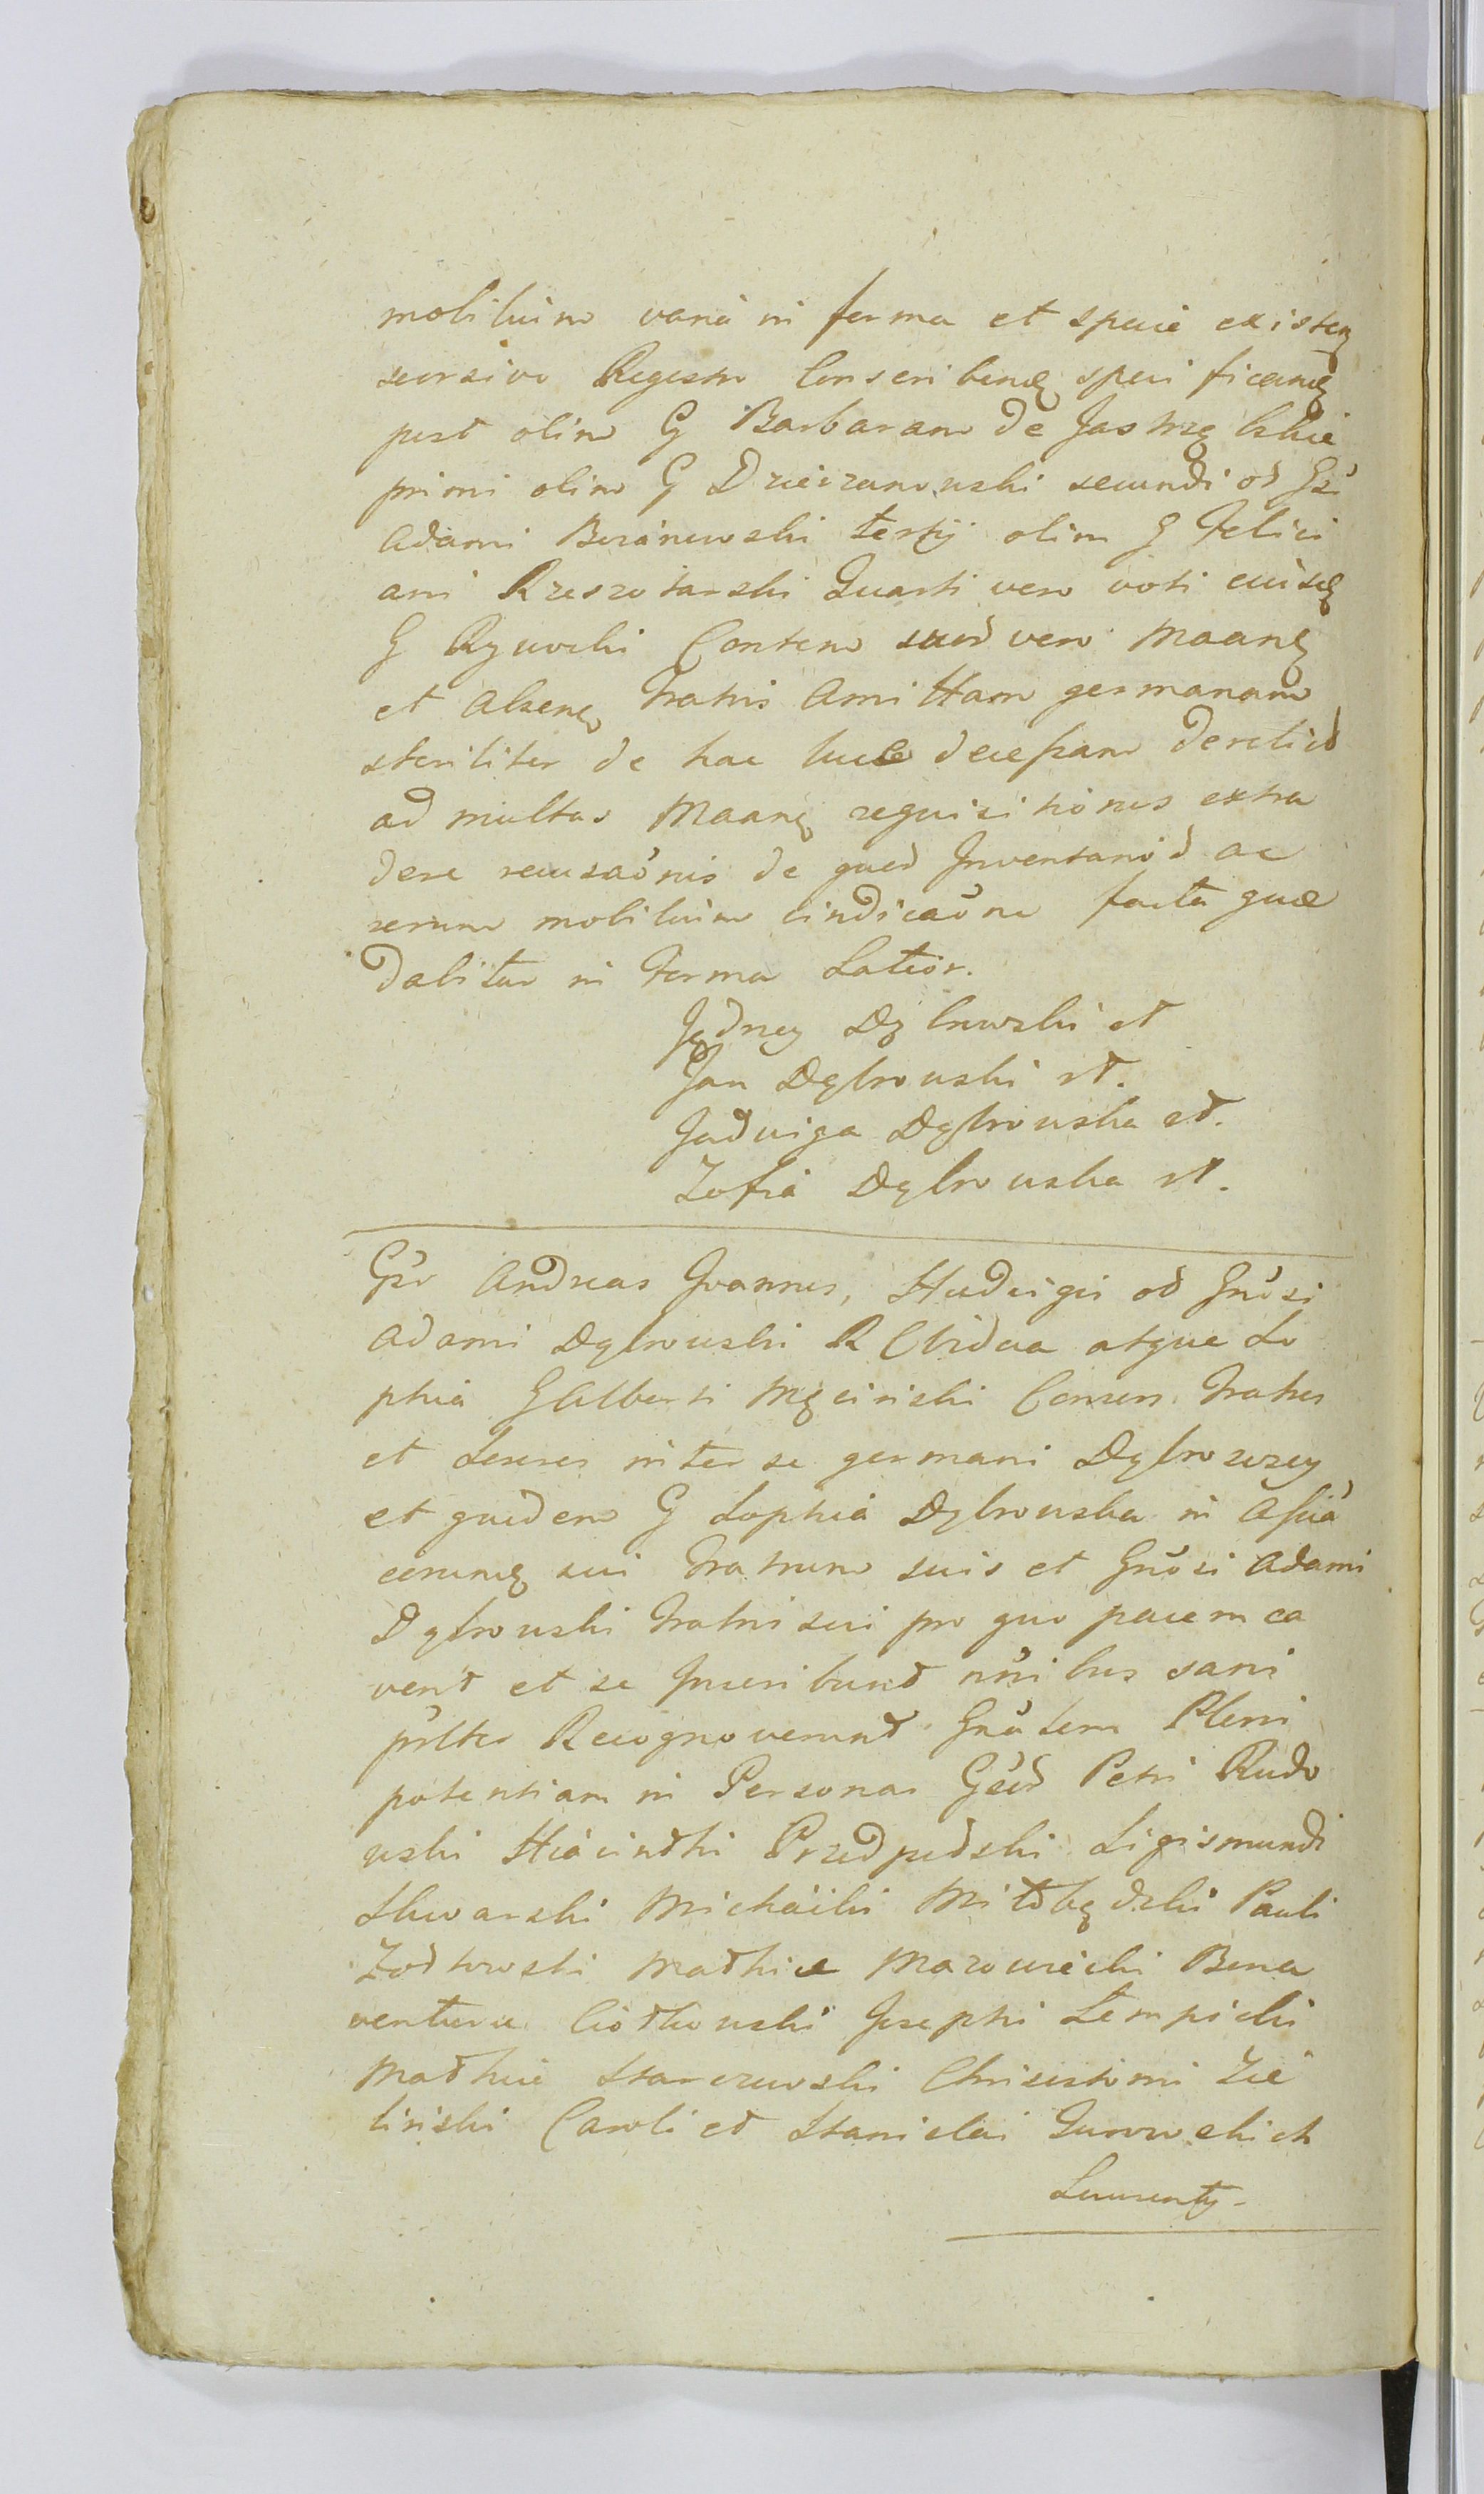 mobilium varia in forma et specie existen
seorsivo Regestro Conscriben specificand
post olim G Barbaram de Jastrzębskie
primi olim G Dzierzanowski secundi od Gsi
Adami Bozanowski tertij olim G Felici
ani Rzeszotarski Quarti vero voti
G Ryuoski Contem vero Maan
et Absen Fratris Amittam germanam
steriliter de hac luce decessam derelict
ad multas Maan requisitiones extra
dere recusaonis de quod Inventario ac
rerum mobilium vindicaone facta quae
dabitur in Forma Latior.
Jędrzey Dąbrowski et
Jan Dąbrowski et.
Jadwiga Dąbrowska et.
Zofia Dąbrowska et.
Gsi Andreas Joannes, Hedvigis od Gnosi
Adami Dąbrowski R Vidua atque So
phia G Alberti Męciński Consors Fratres
et Sorores inter se germani Dąbrowscy
et quidem G Sophia Dąbrowska in Assia
eorund sui Fratrum suis et Gnosi Adami
Dąbrowski Fratris sui pro quo pacem ca
vent et se Inscribunt onibus sani
pnltes Recognoverunt Gnalem Pleni
potentiam in Personas Petri Rudo
wski Hiacinthi Przedpełski Sigismundi
Skwarski Michaelis Pauli
Mathiae Mazowiecki Bona
ventura Ciołkowski Josephi Lempicki
Mathiae Starczewski Chrisostomi Zie
liński Caroli et Stanislai Gurowskich
Laurenty-